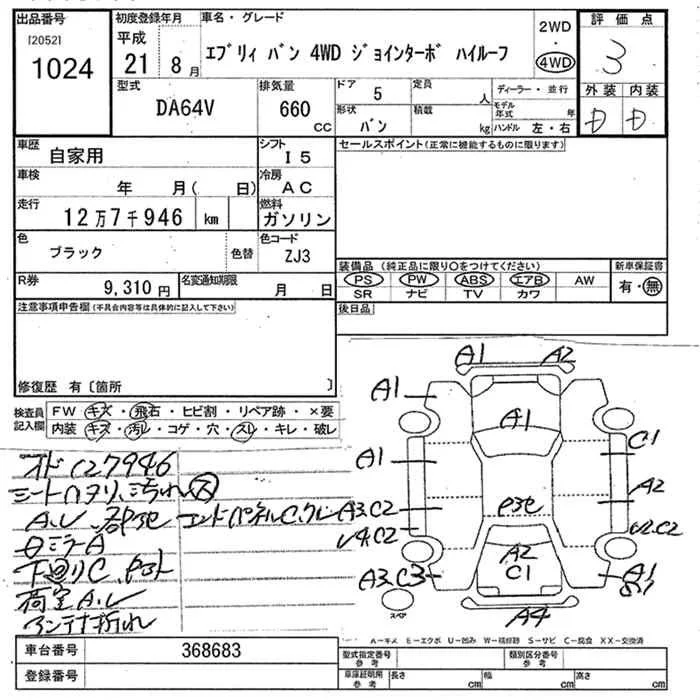 出品番号
[2052]
1024
初度登録年月
平成
21 8月
車名・グレード
エブリィ バン 4WD ジョインターボ ハイルーフ
2WD
・
4WD
評価点
3
外装 内装
D D
型式
DA64V
排気量
660
CC
ドア
5
定員
人
形状
バン
積載
kg
ディーラー・並行
モデル年式 年
ハンドル 左・右
車歴
自家用
シフト
I5
セールスポイント(正常に機能するものに限ります)
車検
年 月( 日)
冷房
AC
走行
12万7千946 km
燃料
ガソリン
色
ブラック
色替
色コード
ZJ3
装備品 (純正品に限り○をつけてください)
新車保証書
PS PW ABS エアB AW
有・無
SR ナビ TV カワ
R券
9,310円
名変通知期限
月 日
後日品
注意事項申告欄(不具合内容等は具体的に記入して下さい)
修復歴 有〔箇所 〕
検査員
記入欄
FW キズ・飛石・ヒビ割・リペア跡・×要
内装 キズ・汚レ・コゲ・穴・スレ・キレ・破レ
オド127946
シートハタリ、汚れ大
A.U 部凹 エンドパネルC.クレ
日ミラーA
下廻りC、
荷室A.U
アンテナ折れ
A1 A2
A1
A1
A1
C1
A2
A3.C2
P3凹
U4.C2
U2.C2
A2
C1
A3.C3
A1
A4
スペア
A-キズ E-エクボ U-凹み W-補修跡 S-サビ C-腐食 XX-交換済
車台番号
368683
登録番号
型式指定番号
参考
類別区分番号
参考
車庫証明用
参考
長さ cm
幅 cm
高さ cm